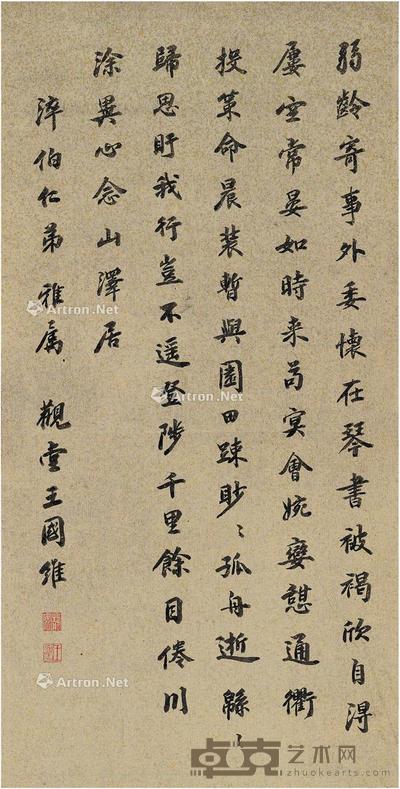 弱齡寄事外委懷在琴書被褐欣自得
屢空常晏如時来苟冥會婉孌憇通衢
投策命晨装暫與園田踈眇〻孤舟逝緜〻
歸思盱我行豈不遥登陟千里餘目倦川
涂異心念山澤居
淬伯仁弟雅属 觀堂王國維
Artron.Net
Artron.Net
Artron.Net
Artron.Net
卓克艺术网
www.zhuokearts.com